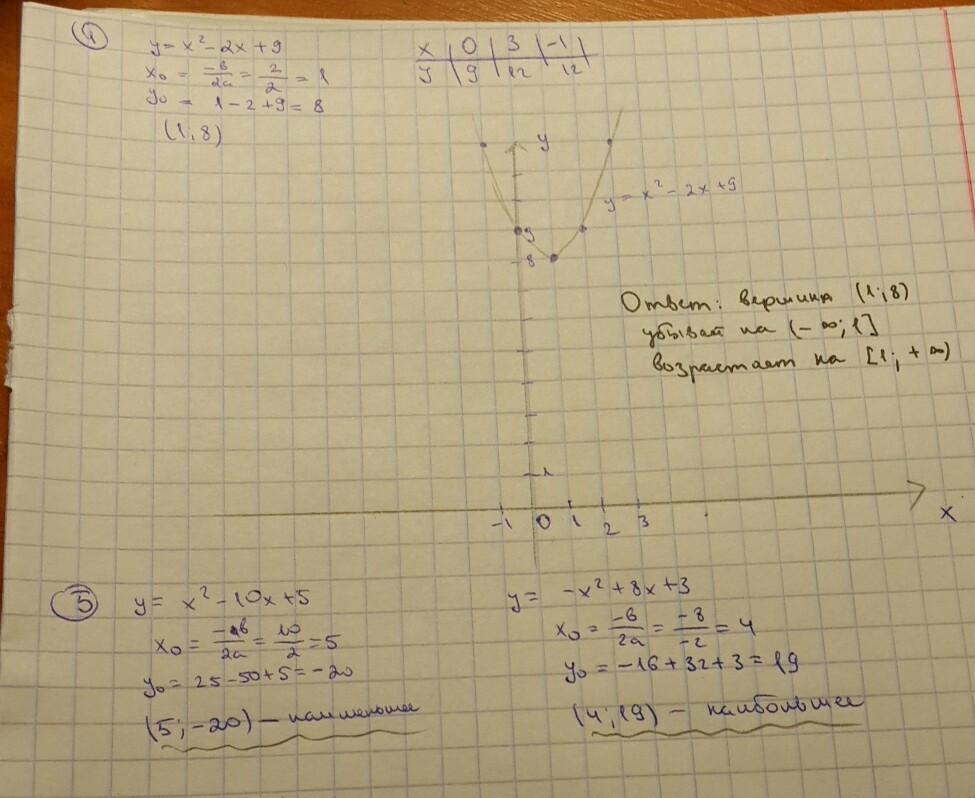 ④
y = x² - 2x + 9
x₀ = -в/2a = 2/2 = 1
y₀ = 1 - 2 + 9 = 8
(1; 8)
x | 0 | 3 | -1 |
y | 9 | 12 | 12
y
y = x² - 2x + 9
9
8
Ответ: вершина (1; 8)
убывает на (-∞; 1]
возрастает на [1; +∞)
1
-1 0 1 2 3
x
⑤
y = x² - 10x + 5
x₀ = -в/2a = 10/2 = 5
y₀ = 25 - 50 + 5 = -20
(5; -20) - наименьшее
y = -x² + 8x + 3
x₀ = -в/2a = -8/-2 = 4
y₀ = -16 + 32 + 3 = 19
(4; 19) - наибольшее